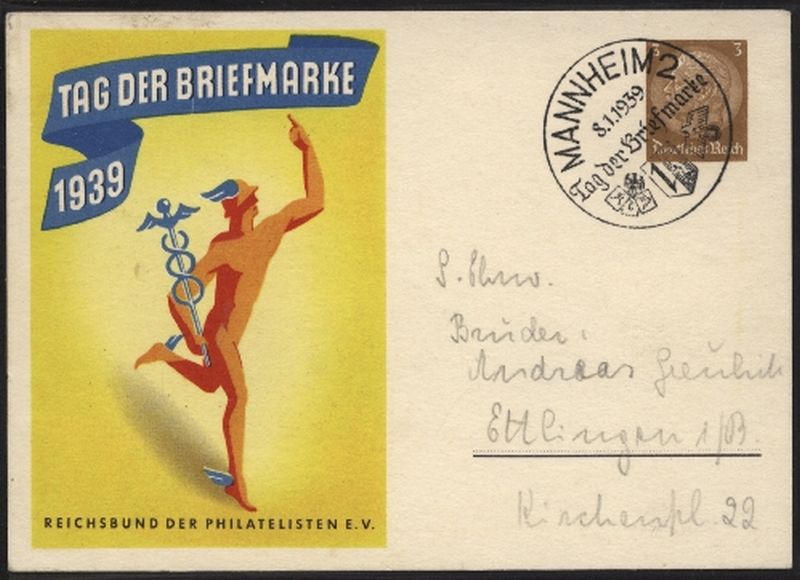 TAG DER BRIEFMARKE
1939
REICHSBUND DER PHILATELISTEN E.V.
MANNHEIM 2
8.1.1939
Tag der Briefmarke
3 3
Deutsches Reich
Bruder
Andreas
Ettlingen i/B.
Kirchenpl. 22